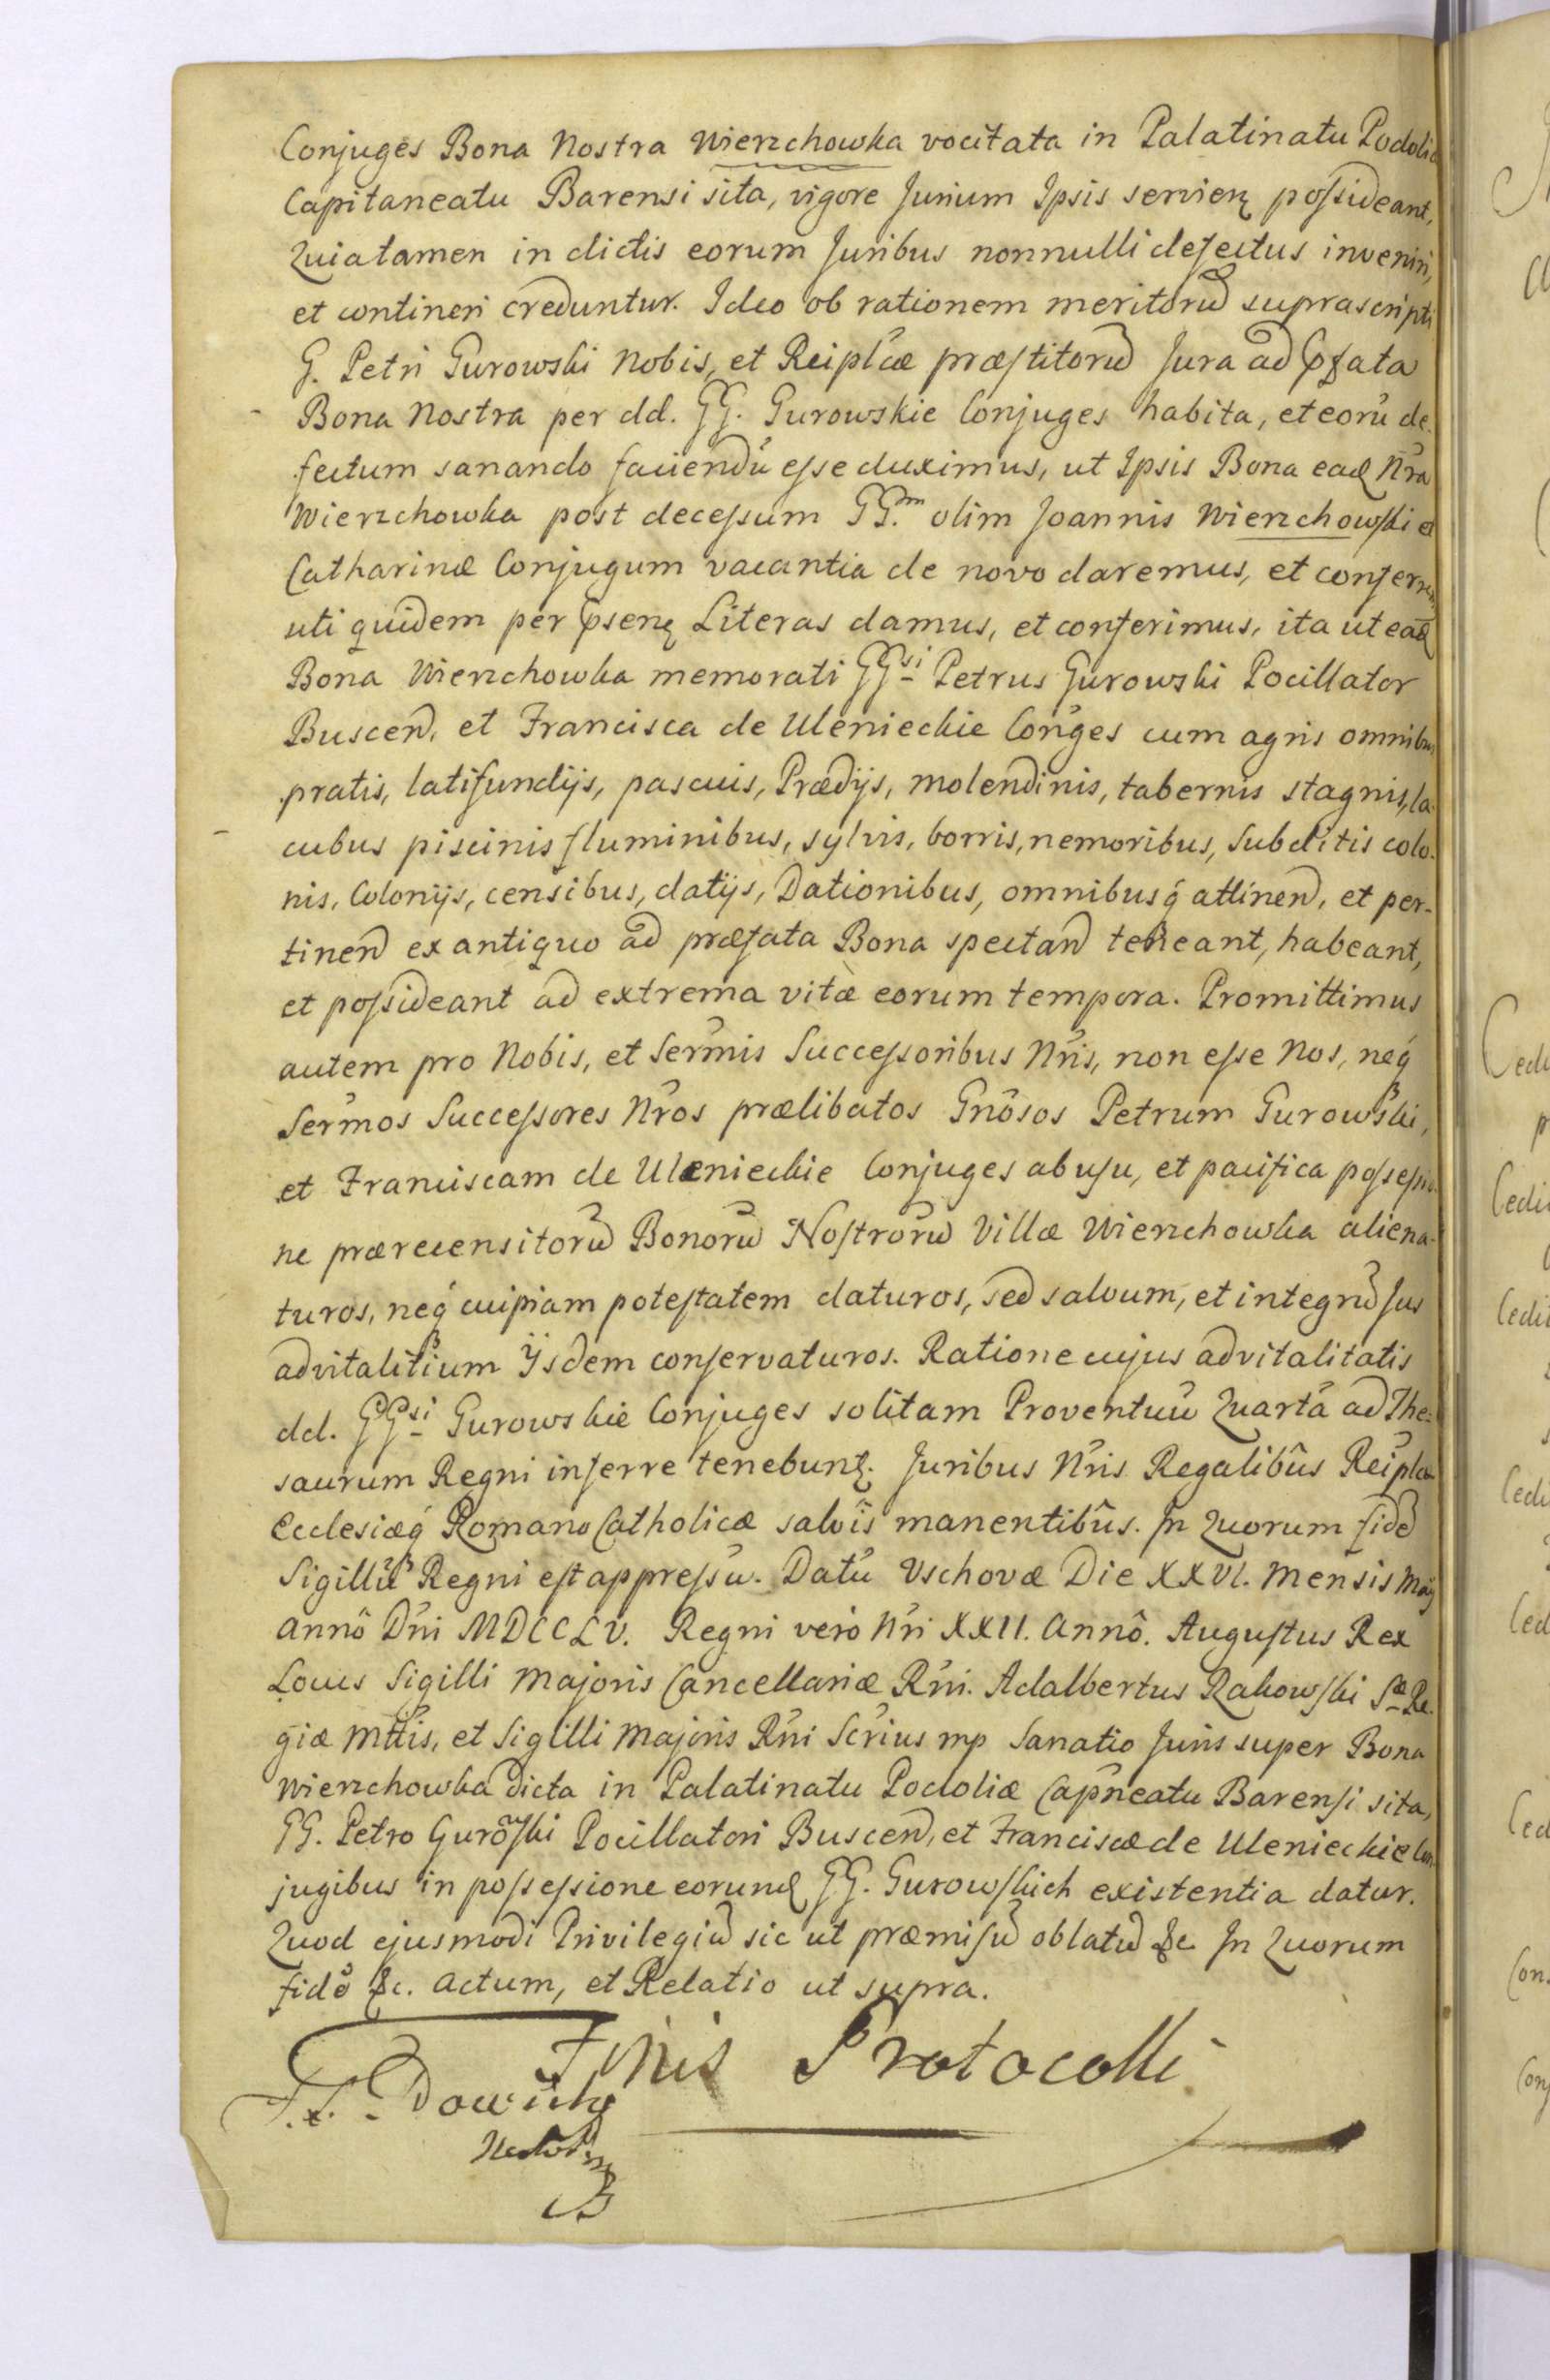 Conjuges Bona Nostra Wierzchowka vocitata in Palatinatu Podoliæ
Capitaneatu Barensi sita, vigore Jurium Ipsis servien possideant,
Quia tamen in dictis eorum Juribus nonnulli defectus inveniri,
et contineri creduntur. Ideo ob rationem meritorũ suprascripti
G. Petri Gurowski Nobis, et Reiplĉæ præstitorũ Jura ad pfata
Bona Nostra per dd. GG. Gurowskie Conjuges habita, et eorũ de
fectum sanando faciendũ esse duximus, ut Ipsis Bona ead Nr̃a
Wierzchowka post decessum GG.m olim Joannis Wierzchowski et
Catharinæ Conjugum vacantia de novo daremus, et conferrem,
uti quidem per psen Literas damus, et conferimus, ita ut ead
Bona Wierzchowka memorati GGsi Petrus Gurowski Pocillator
Buscen, et Francisca de Ulenieckie Con̂ges cum agris omnibus,
pratis, latifundijs, pascuis, Prædijs, molendinis, tabernis stagnis, la-
cubus piscinis fluminibus, sylvis, borris, nemoribus, Subditis colo-
nis, Colonijs, censibus, datijs, Dationibus, omnibusq́ attinen, et per-
tinen ex antiquo ad præfata Bona spectan teneant, habeant,
et possideant ad extrema vitæ eorum tempora. Promittimus
autem pro Nobis, et Serm̃is Successoribus Nr̃is, non esse Nos, neq́
Serm̃os Successores Nr̃os prælibatos Gnõsos Petrum Gurowski,
et Franciscam de Ulenieckie Conjuges ab usu, et pacifica possessio-
ne præcensitorũ Bonorũ Nostrorũ Villæ Wierzchowka aliena-
turos, neq́ cuipiam potestatem daturos, sed salvum, et integrũ Jus
advitalitium Ijsdem conservaturos. Ratione cujus advitalitatis
dd. GGsi Gurowskie Conjuges solitam Proventuũ Quartã ad The-
saurum Regni inferre tenebunt. Juribus Nr̃is Regalibûs Reiplæ
Ecclesiæq́ Romano Catholicæ salvîs manentibûs. In Quorum fidẽ
Sigillũ Regni est appressũ. Datũ Vschovæ Die XXVI. Mensis Maij
Annô Dñi MDCCLV. Regni verò Nr̃i XXII. Annô. Augustus Rex
Locus Sigilli Majoris Cancellariæ Rñi. Adalbertus Rakowski Sæ Re-
giæ Mttis, et Sigilli Majoris Rñi Scr̃ius mp Sanatio Juris super Bona
Wierzchowka dicta in Palatinatu Podoliæ Capñeatu Barensi sita,
GG. Petro Gurowski Pocillatori Buscen, et Franciscæ de Ulenieckie Con-
jugibus in possessione eorund GG. Gurowskich existentia datur.
Quod ejusmodi Privilegiũ sic ut præmisũ oblatũ &c In Quorum
fidẽ &c. Actum, et Relatio ut supra.
Finis Protocolli